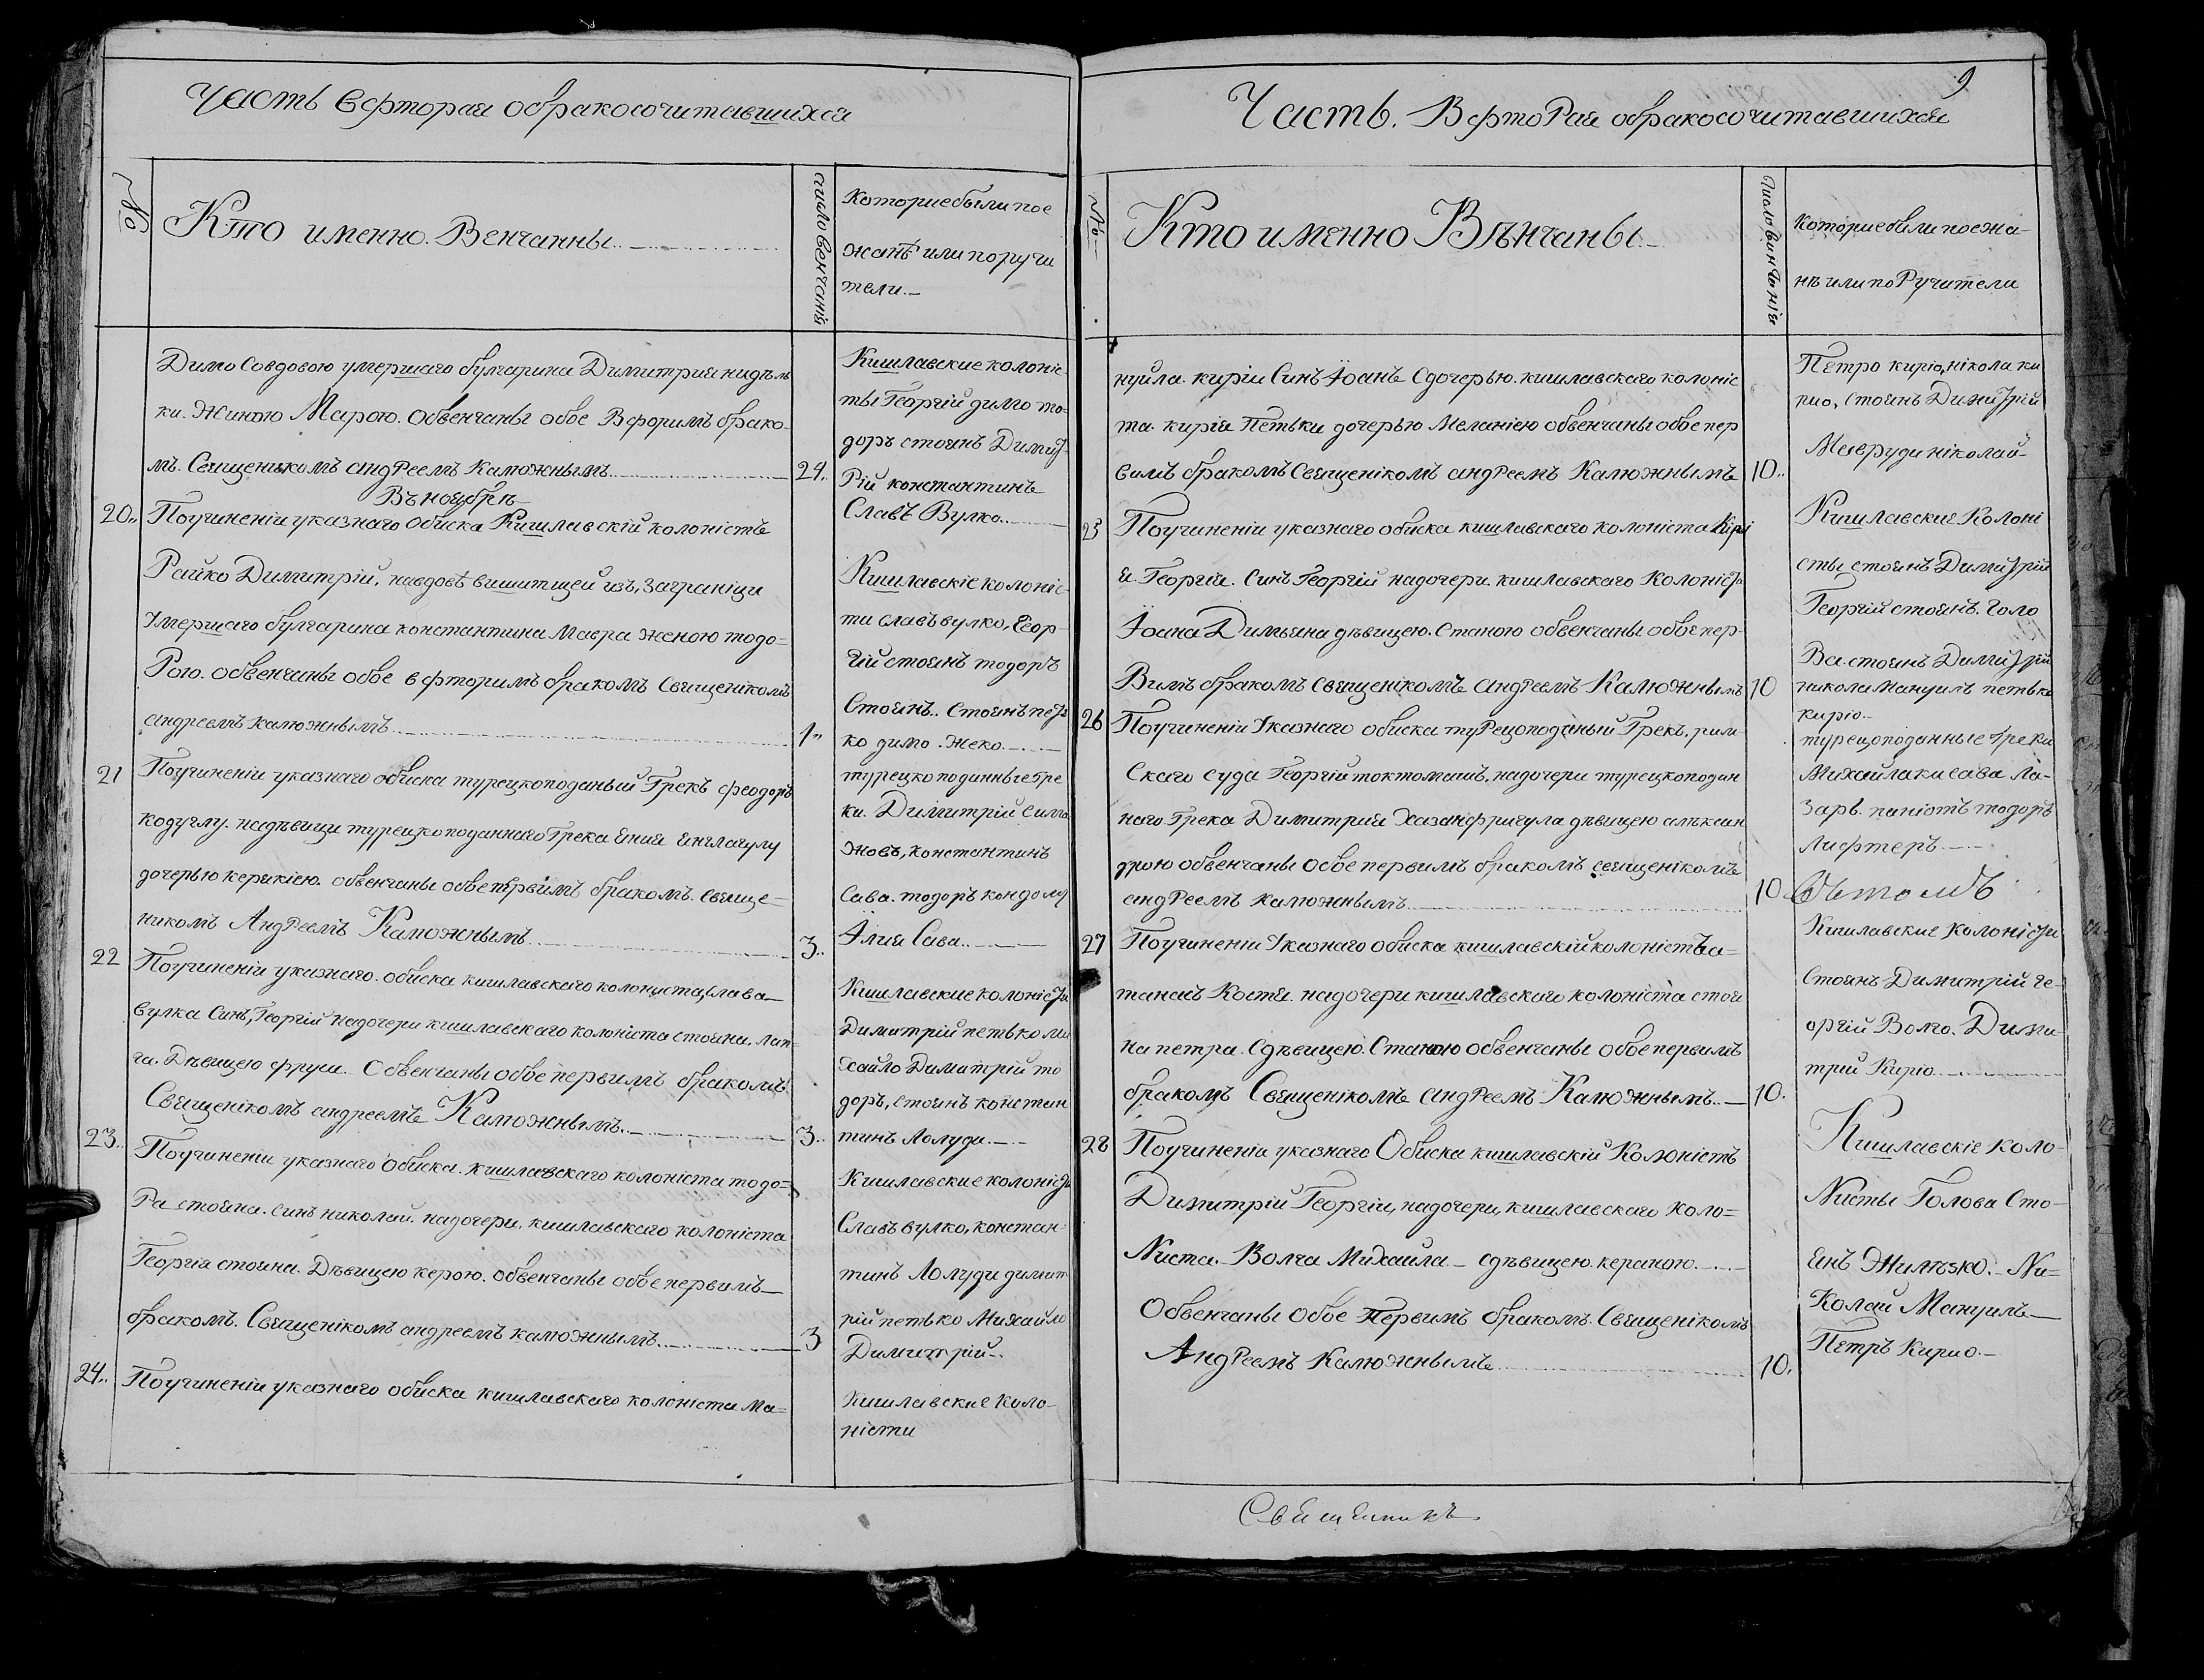 Часть вфторая обракосочитавшихся
№
Кто именно. Венчанны
число венчания
Которие были пое
жанѣ или поручи
тели.
Димо Совдовою умершаго булгарина Димитрия нидѣль
ки. Жиною Марою. Обвенчаны обое Вфторимъ брако
мъ. Священикомъ андреемъ Калюжнымъ 24.
Кишлавские колоніс
ты Георгій димо то
доръ стоянъ Димит
Рій константинъ
Славъ Вулко.
Въ ноябрѣ
20. Поучиненіи указнаго обиска Кишлавскій колоністъ
Райко Димитрій, навдовѣ вишитщей изъ, Заграници
Умершаго булгарина константина Мавра женою тодо=
Рою. обвенчаны обое вфторимъ бракомъ Священікомъ
андреемъ калюжнымъ 1.
Кишлавскіе колоніс
ти славъ вулко, Геор
гій стоянъ тодоръ
Стоянъ.. Стоянъ пет
ко димо. Жеко.
21 Поучиненіи указнаго обиска турецкоподаный Грекъ феодоръ
кодуглу. надѣвици турецкоподаннаго Грека Ения Енглагулу
дочерью керикіею. обвенчаны обое первимъ бракомъ. свяще=
никомъ Андреемъ Калюжнымъ 3.
турецкоподанные Гре
ки. Димитрий симо
Жовъ, константинъ
Сава. тодоръ кондому
Илия Сава.
22 Поучиненіи указнаго. обиска кишлавскаго колониста слава
вулка Синъ, Георгій надочери кишлавскаго колоніста стояна. лап
га. Дѣвицею фруси. Обвенчаны обое первимъ бракомъ
Священікомъ андреемъ Калюжнымъ. 3.
Кишлавские колоністи
Димитрий петько ми
хайло Димитрій то
доръ, стоянъ констан
тинъ Лолуди.
23. Поучиненіи указнаго обиска. кишлавскаго колоніста тодо=
Ра стояна. синъ николай. надочери, кишлавскаго колоніста
Георгія стояна. Дѣвицею керою. обвенчаны обое первимъ
бракомъ. Священікомъ андреемъ калюжнымъ. 3
Кишлавские колоністи
Славъ вулко, констан
тинъ Лолуди димит
рій петько Михайло
Димитрій.
24. Поучиненіи указнаго обиска кишлавскаго колоніста Ма=
Кишлавские коло
ністи
9
Часть. ВфтоРая обракосочитавшихся
№
Кто именно Вѣнчаны
число винчания
которие были поежа
нѣ или поРучители
нуйла. кирии Синъ Іоанъ Сдочерью. кишлавскаго колоніс
та. кирія Петьки дочерью Меланіею обвенчаны обое пер
вимъ бракомъ Священікомъ андреемъ Калюжнымъ 10.
Петро киріо, нікола ки
рио, стоянъ Димитрій
Мавруди ніколай
25 Поучиненіи указнаго обиска кишлавскаго колоніста Кирі
я. Георгія. Синъ Георгій надочери. кишлавскаго Колоніст
Іоана Димьяна дѣвицею. Станою обвенчаны обое пер
Вимъ бракомъ священікомъ андреемъ Калюжнымъ 10
Кишлавские Колоні
сты стоянъ Димитрій
Георгій стоянъ. Голо
Ва. стоянъ Димитрій
никола Мануилъ петько
киріо.
26 Поучиненіи Указнаго обиска туРецоподаный Грекъ. рим
Скаго суда Георгій токтомашъ, надочери турецкоподан
наго. Грека Димитрия Хазанфригула дѣвицею алѣксан
дрою обвенчаны обое первимъ бракомъ священікомъ
андреемъ калюжнымъ 10
турецоподанные Греки
Михайлаки сава Ла
Зарь. паніотъ тодоръ
Лифтеръ
27 Поучиненіи Указнаго обиска кишлавскій колоністъ а=
танасъ Костя. надочери кишлавскаго колоніста стоя
на петра. Сдѣвицею. Станою обвенчаны обое первимъ
бракомъ Священікомъ андреемъ Калюжнымъ.. 10.
Кишлавские колоністи
Стоянъ Димитрий ге
оргій Волго. Дими
трий Кирио
28 Поучиненіи указнаго Обиска кишлавскій Колоністъ
Димитрій Георгіи, надочери, кишлавскаго коло=
Ниста. Волча Михаила сдѣвицею. кераною.
Обвенчаны Обое Первимъ бракомъ. Священікомъ
Андреемъ Калюжнымъ 10.
Кишлавскіе коло
Нисты Голова Сто
янъ Желѣзко. Ни=
Колай Мануилъ
Петръ Кирио.
Священникъ